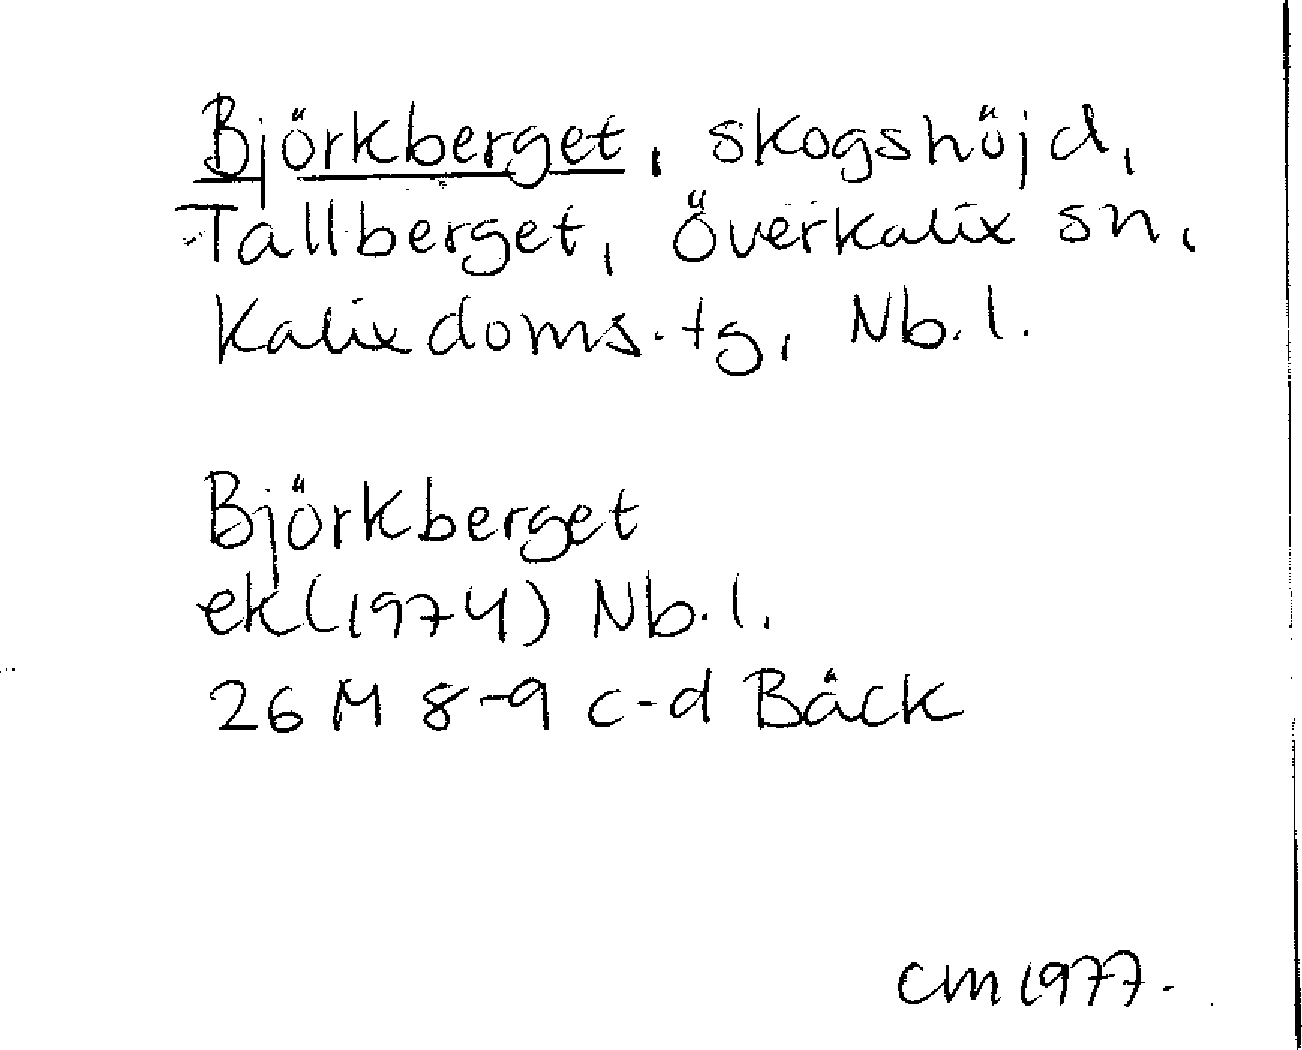 Björkberget, skogshöjd,
Tallberget, Överkalix sn,
Kalix doms.tg, Nb.l.
Björkberget
ek(1974) Nb.l.
26 M 8-9 c-d Bäck
CM 1977.